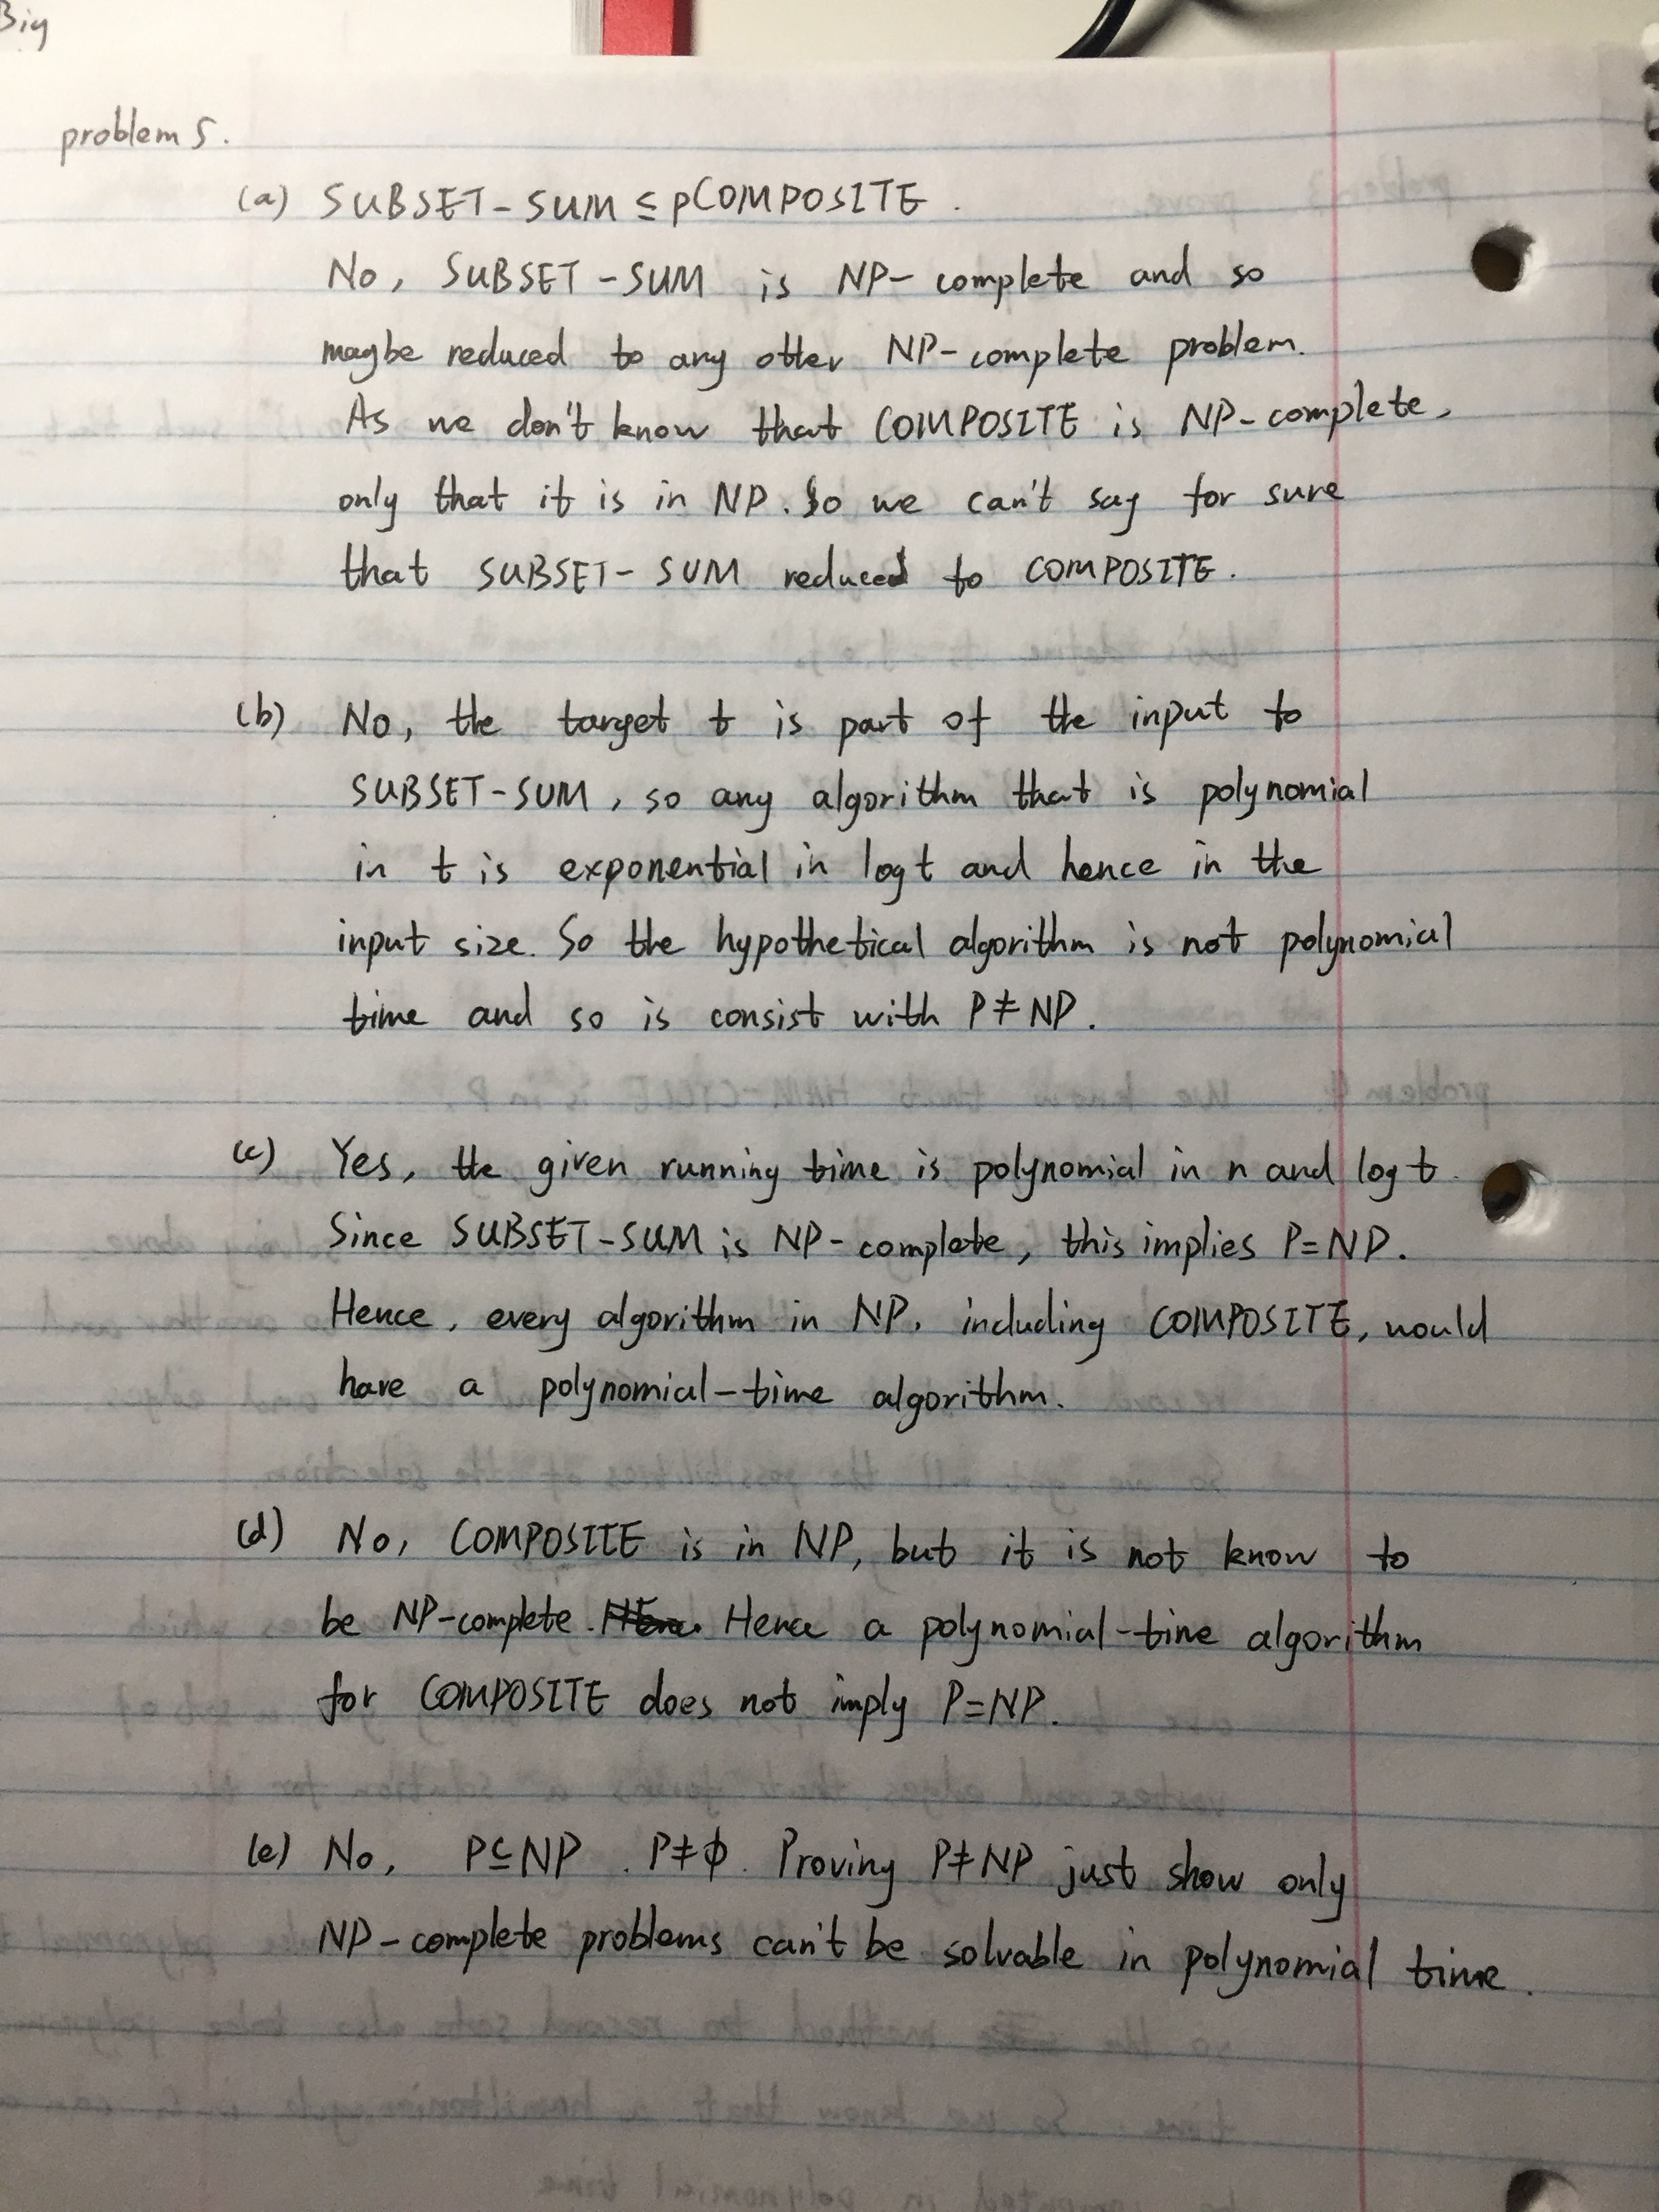 Big
problem 5.
(a) SUBSET-SUM ≤ pCOMPOSITE.
No, SUBSET-SUM is NP-complete and so
maybe reduced to any otter NP-complete problem.
As we don't know that COMPOSITE is NP-complete,
only that it is in NP. So we can't say for sure
that SUBSET-SUM reduced to COMPOSITE.
(b) No, the target t is part of the input to
SUBSET-SUM, so any algorithm that is polynomial
in t is exponential in log t and hence in the
input size. So the hypothetical algorithm is not polynomial
time and so is consist with P≠NP.
(c) Yes, the given running time is polynomial in n and log t.
Since SUBSET-SUM is NP-complete, this implies P=NP.
Hence, every algorithm in NP, including COMPOSITE, would
have a polynomial-time algorithm.
(d) No, COMPOSITE is in NP, but it is not know to
be NP-complete. Hence a polynomial-time algorithm
for COMPOSITE does not imply P=NP.
(e) No, P⊆NP. P≠ϕ. Proving P≠NP just show only
NP-complete problems can't be solvable in polynomial time.